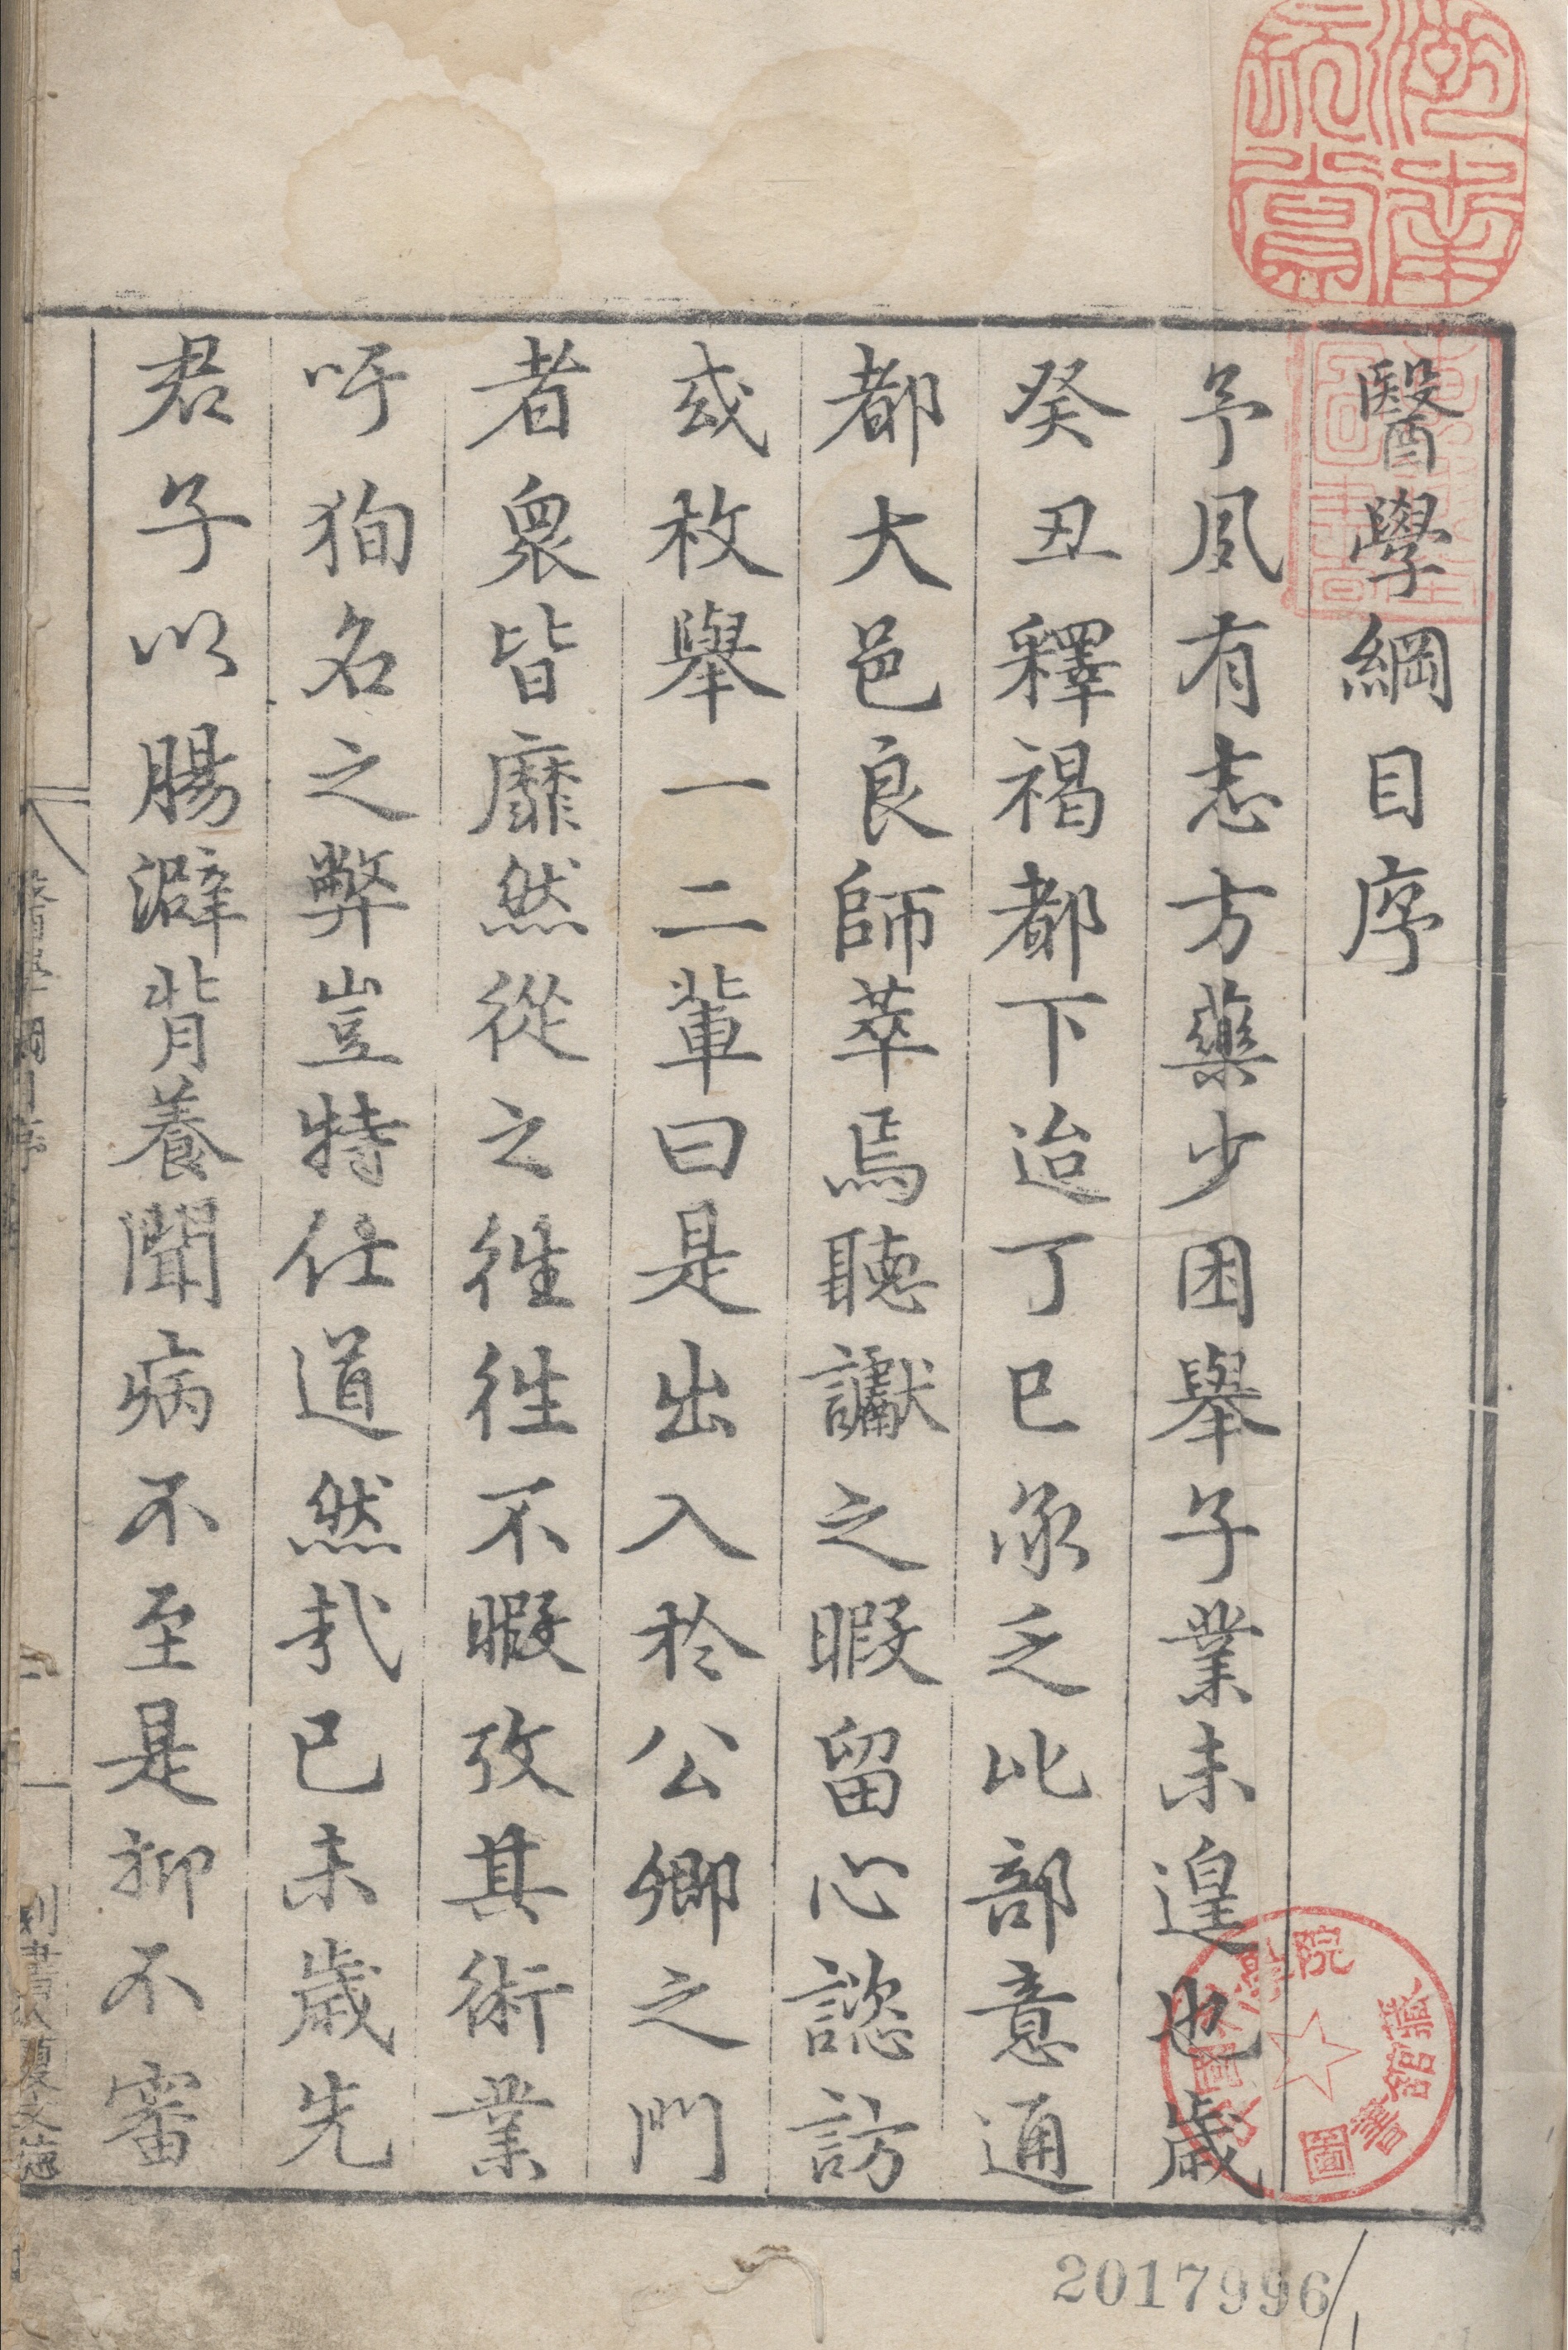 醫學綱目序
予夙有志方藥少困舉子業未遑也歲
癸丑釋褐都下迨丁巳承乏比部意通
都大邑良師萃焉聽讞之暇留心諮訪
或枚舉一二輩曰是出入於公卿之門
者衆皆靡然從之徃徃不暇攷其術業
吁狥名之弊豈特任道然哉已未歲先
君子以腸澼背養聞病不至是抑不審
醫學綱目序
2017996